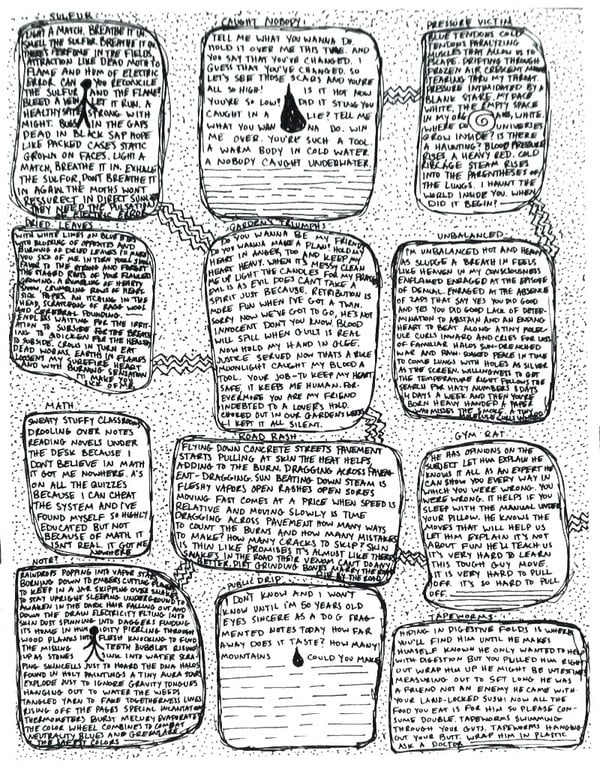 SULFUR
LIGHT A MATCH, BREATHE IT IN.
SMELL THE SULFUR. BREATHE IT IN
THERE'S PERFUME IN THE FIELDS.
ATTRACTION LIKE DEAD MOTH TO
FLAME AND HUM OF ELECTRIC
ERROR CAN YOU RECONCILE
THE SULFUR THE FLAME?
BLEED A LET IT RUN. A
HEALTHY STRONG WITH
MIGHT. BUGS IN THE GAPS
DEAD IN BLACK SAP HOPE
LIKE PACKED CASES STATIC
GROWN ON FACES. LIGHT A
MATCH, BREATHE IT IN. EXHALE
THE SULFUR, DON'T BREATHE IT
IN AGAIN. THE MOTHS WON'T
RESURRECT IN DIRECT
THEY NEED THE PULSATING
ELECTRIC ERROR
CAUGHT NOBODY
TELL ME WHAT YOU WANNA DO
HOLD IT OVER ME THIS TIME. AND
YOU SAY THAT YOU'VE CHANGED. I
GUESS THAT YOU'VE CHANGED. SO
LET'S SEE THOSE SCABS AND YOU'RE
ALL SO HIGH! IS IT HOT NOW
YOU'RE SO LOW? DID IT STING YOU
CAUGHT IN A LIE? TELL ME
WHAT YOU WAN NA DO. WIN
ME OVER. YOU'RE SUCH A TOOL
A WARM BODY IN COLD WATER
A NOBODY CAUGHT UNDERWATER.
PRESSURE VICTIM
BLUE TENDONS COLD
TENDONS PARALYZING
MUSCLES THAT ALLOW US TO
ESCAPE. DRIFTING THROUGH
FROZEN AIR CRESCENT
TEARING THRU MY THROAT.
PRESSURE INTIMIDATED BY A
BLANK STARE. MY FACE
WHITE, THE EMPTY SPACE
IN MY WHITE.
WHERE DO UNIVERSES
GROW INSIDE? IS THERE
A HAUNTING? BLOOD PRESSURE
RISES A HEAVY RED. COLD
RIBCAGE STEAM RISES
INTO THE PARENTHESES OF
THE LUNGS. I HAUNT THE
WORLD INSIDE YOU. WHEN
DID IT BEGIN?
DRIED LEAVES
WITH WHITE LINES ON BLUE EYES
WITH BLURRING OF OPPOSITES AND
BURNING OF DRIED LEAVES TO MAKE
YOU SICK OF ME IN YOUR
TO THE STRONG AND
THE ROOTS OF YOUR
GROWING. A RUMBLING OF
CRUMBLING ROOF OF
SICK AN ITCHING IN THE
HEAD, SCRATCHING OF
AND CEREBRAL POUNDING.
ENDLESS WAITING FOR THE IRRIT-
ATION TO SUBSIDE FOR THE BREATH-
ING TO QUICKEN FOR THE
TO SUBSIDE. CRAWL IN TURN EAT
DEAD WORMS. EARTH IN FLAMES
LOOSENS MY SUREFIRE HEART
AND WITH BURNING SENSATION
IT MAKE YOU
GARDEN'S TRIUMPHS
DO YOU WANNA BE MY FRIEND
DO YOU WANNA MAKE A PLAN? HOLD MY
HEART IN ANGER, AND KEEP MY
HEART HEAVY. WHEN IT'S MESSY CLEAN
ME UP LIGHT THE CANDLES FOR MY
EVIL IS AS EVIL DOES CAN'T TAKE A
SPIRIT JUST BECAUSE. RETRIBUTION IS
MORE FUN WHEN I'VE GOT A TWIN.
SORRY NOW WE'VE GOT TO GO, HE'S NOT
INNOCENT DON'T YOU KNOW. BLOOD
WILL SPILL WHEN GUILT IS REAL
YOU HOLD MY HAND IN GLEE.
JUSTICE SERVED NOW THAT'S A RULE
MOONLIGHT CAUGHT MY BLOOD A
TOOL. YOUR JOB - TO KEEP MY HEART
SAFE, IT KEEPS ME HUMAN. FOR-
EVERMORE YOU ARE MY FRIEND
INDEBTED TO A LOVER'S HOLD.
CHOKED OUT IN OUR GARDEN'S
I KEPT IT ALL SILENT.
UNBALANCED
I'M UNBALANCED HOT AND HEAVY
AS SLUDGE A BREATH IN FEELS
LIKE HEAVEN IN MY CONSCIOUSNESS
ENFLAMED ENRAGED AT THE EPISODE
OF DENIAL. ENRAGED AT THE ABSENCE
OF ZAPS THAT SAY YES YOU DID GOOD
AND YES YOU DID GOOD LACK OF DETER-
MINATION TO ABSTAIN AND AN DEMAND
HEART TO BEAT ALONG A TINY MOLEC-
ULE CURLS INWARD AND CRIES FOR LOSS
OF FAMILIAR HALOS SUN-DRENCHED
WAR AND PEACE IN TIME
TO COME LUNGS WITH HOLES AS SILVER
AS THE SCREEN. WILLINGNESS TO GET
THE TEMPERATURE RIGHT FOLLOWS THE
SEARCH FOR HAZY NUMBERS 3 DAYS
4 DAYS A WEEK AND THEN YOU'RE
BORN HEAVY HANDED A PAPER
WHO MISSES THE SMOKE. A TINY
CURLS INWARD
MATH
SWEATY STUFFY CLASSROOM
DROOLING OVER NOTES
READING NOVELS UNDER
THE DESK BECAUSE I
DON'T BELIEVE IN MATH
IT GOT ME NOWHERE. A'S
ON ALL THE QUIZZES
BECAUSE I CAN CHEAT
THE SYSTEM AND I'VE
FOUND MYSELF SO HIGHLY
EDUCATED BUT NOT
BECAUSE OF MATH. IT
ISN'T REAL IT GOT ME
NOWHERE
ROAD RASH
FLYING DOWN CONCRETE STREETS PAVEMENT
STARTS PULLING AT SKIN THE HEAT HELPS,
ADDING TO THE BURN. DRAGGING ACROSS PAVEM-
ENT-DRAGGING. SUN BEATING DOWN STEAM IS
FLESHY VAPORS OPEN RASHES OPEN SORES
MOVING FAST COMES AT A PRICE WHEN SPEED IS
RELATIVE AND MOVING SLOWLY IS TIME
DRAGGING ACROSS PAVEMENT HOW MANY WAYS
TO COUNT THE BURNS AND HOW MANY MISTAKES
TO MAKE? HOW MANY CRACKS TO SKIP? SKIN
IS THIN LIKE PROMISES IT'S ALMOST LIKE THERE'S
SNAKES IN THE ROAD THEIR VENOM CAN'T DO ANY
BETTER. DIRT GRINDING BONES MAKE THE BREAD
DIE BY THE ROAD
GYM RAT
HE HAS OPINIONS ON THE
SUBJECT LET HIM EXPLAIN HE
KNOWS IT ALL AS AN EXPERT HE
CAN SHOW YOU EVERY WAY IN
WHICH YOU WERE WRONG. YOU
WERE WRONG. IT HELPS IF YOU
SLEEP WITH THE MANUAL UNDER
YOUR PILLOW. HE KNOWS THE
MOVES THAT WILL HELP US
LET HIM EXPLAIN IT'S NOT
ABOUT FUN HE'LL TEACH US
IT'S VERY HARD TO LEARN
THIS TOUGH GUY MOVE.
IT IS VERY HARD TO PULL
OFF. IT'S SO HARD TO PULL
OFF.
NOTE:
RAINDROPS POPPING INTO VAPOR STAR
BORNING DOWN TO EMBERS CUTTING
TO KEEP IN A JAR SKIPPING OVER SNAKES
TO STAY UPRIGHT SLEEPING UNDERGROUND
AWAKEN IN THE DARK HAIR FALLING OUT AND
DOWN THE DRAIN ELECTRICITY FLYING INTO
SKIN DUST SPINNING INTO DAGGERS FINDING
ITS HOME IN HUMIDITY PIERCING THROUGH
WOOD PLANKS INTO FLESH KNOCKING TO FIND
THE MISSING TEETH BUBBLES RISING
UP AS STONES SINK INTO WATER SEAL
PING SKINCELLS JUST TO HOARD THE DNA HALOS
FOUND IN HOLY PAINTINGS A TINY AURA STARS
EXPLODE JUST TO IGNORE GRAVITY TONGUES
HANGING OUT TO WATER THE WEEDS
TANGLED YARN TO FAKE TOGETHERNESS LINES
RISING OFF THE PAGES SPECIAL INCANTATION
THERMOMETERS BURST MERCURY EVAPORATES
THE COLOR WHEEL COMBINES TO COMBAT
NEUTRALITY BLUES AND GREENS ARE
THE SAFEST COLORS
PUBLIC DRIP
I DON'T KNOW AND I WON'T
KNOW UNTIL I'M 50 YEARS OLD
EYES SINCERE AS A DOG FRAG-
MENTED NOTES TODAY HOW FAR
AWAY DOES IT TASTE? HOW MANY
MOUNTAINS COULD YOU MAKE
TAPEWORMS
HIDING IN DIGESTIVE FOLDS IS WHERE
YOU'LL FIND HIM UNTIL HE MAKES
HIMSELF KNOWN HE ONLY WANTED TO HELP
WITH DIGESTION BUT YOU PULLED HIM RIGHT
OUT WRAP HIM UP HE MIGHT BE UPSET
MEASURING OUT TO SET LONG HE WAS
A FRIEND NOT AN ENEMY HE CAME WITH
YOUR LAND-LOCKED SUSHI NOW ALL THE
FOOD YOU EAT IS FOR HIM SO PLEASE CON-
SUME DOUBLE. TAPEWORMS SWIMMING
THROUGH YOUR GUTS, TAPEWORMS HANGING
OUT YOUR BUTT WRAP HIM IN PLASTIC
ASK A DOCTOR